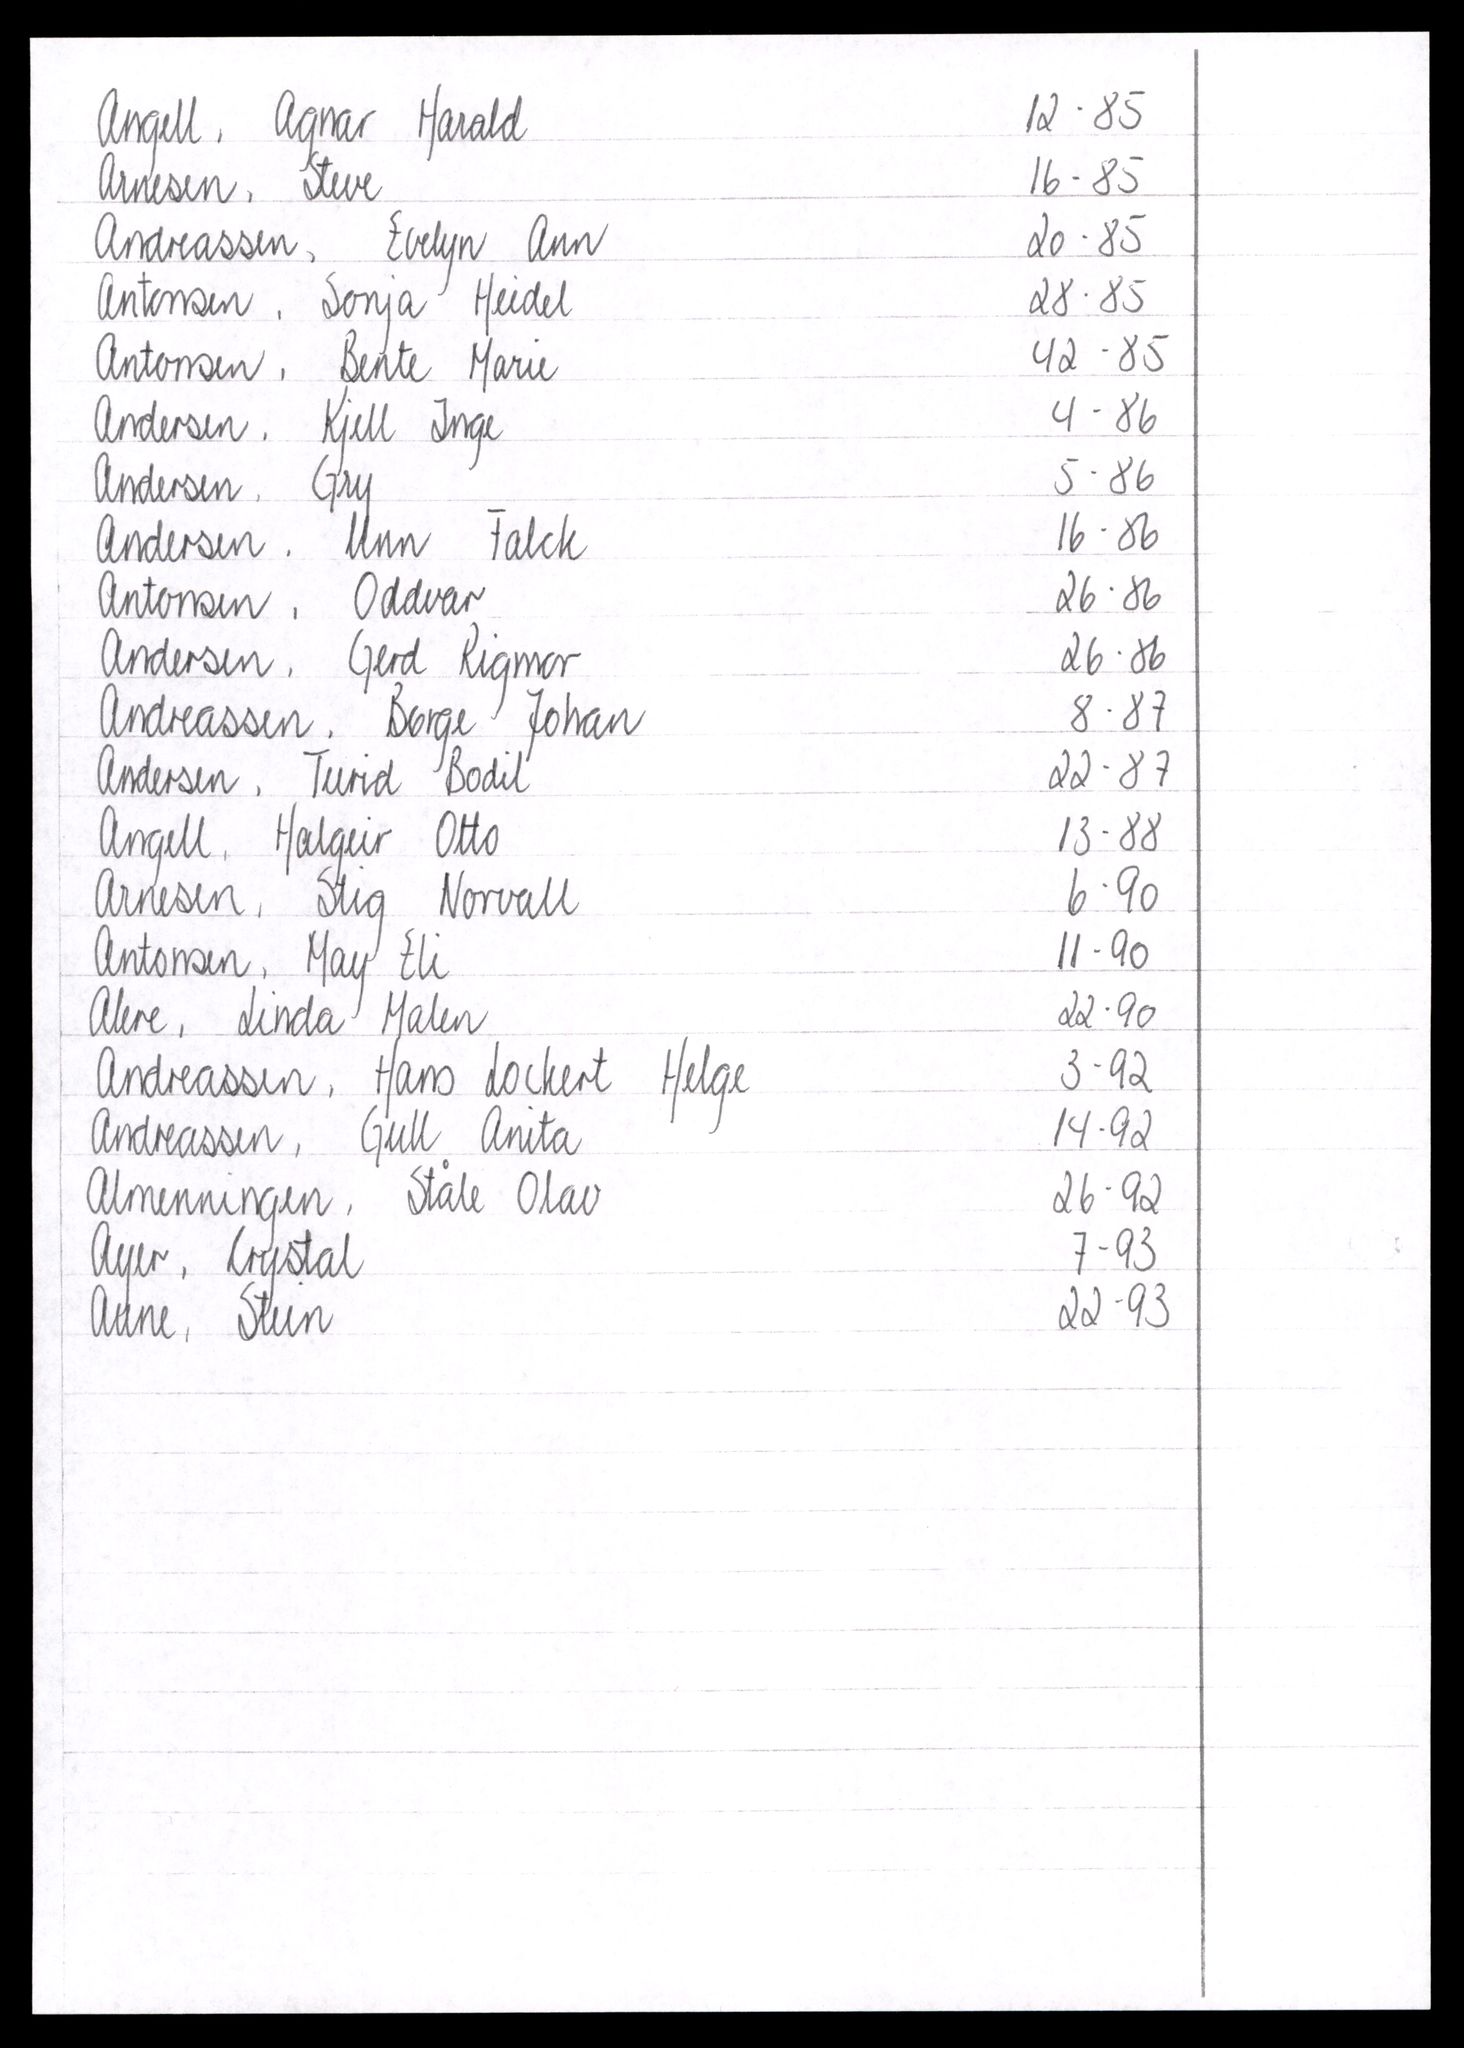 Angell, Agnar Harald 12-85
Arnesen, Steve 16-85
Andreassen, Evelyn Ann 20-85
Antonsen, Sonja Heidel 28-85
Antonsen, Bente Marie 42-85
Andersen, Kjell Inge 4-86
Andersen, Gry 5-86
Andersen, Unn Falck 16-86
Antonsen, Oddvar 26-86
Andersen, Gerd Rigmor 26-86
Andreassen, Børge Johan 8-87
Andersen, Turid Bodil 22-87
Angell, Halgeir Otto 13-88
Arnesen, Stig Norvall 6-90
Antonsen, May Eli 11-90
Linda Malen 22-90
Andreassen, Hans Lockert Helge 3-92
Andreassen, Gull Anita 14-92
Almenningen, Ståle Olav 26-92
Ayer, Crystal 7-93
Aune, Stein 22-93